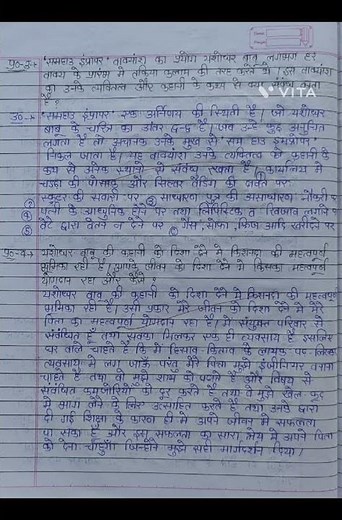 VITA
प्र०-3:→ "समहाउ इंप्रापर" वाक्यांश का प्रयोग यशोधर बाबू लगभग हर
वाक्य के प्रारंभ में तकिया कलाम की तरह करते हैं। इस वाक्यांश
का उनके व्यक्तित्व और कहानी के कथ्य से क्या
है ?
उ०:→ "समहाउ इंप्रापर" एक अनिर्णय की स्थिति है। जो यशोधर
बाबू के चरित्र का अंतर द्वन्द्व है। जब उन्हें कुछ अनुचित
लगता है तो अचानक उनके मुख से सम हाउ इंप्रापर
निकल जाता है। यह वाक्यांश उनके व्यक्तित्व को कहानी के
कथ्य से अनेक स्थानों से संबंध रखता है। कार्यालय में
चड्ढा की पोशाक और सिल्वर वैडिंग की दावत पर
स्कूटर की सवारी पर ③ साधारण पुत्र की असाधारण नौकरी पर
④ पत्नी के आधुनिक होने पर तथा लिपिस्टिक व खिजाब लगाने पर
⑤ बेटे द्वारा वेतन न देने पर ⑥ गैस, सोफा, फ्रिज आदि खरीदने पर
प्र०-4:→ यशोधर बाबू की कहानी को दिशा देने में किशनदा की महत्वपूर्ण
भूमिका रही है। आपके जीवन को दिशा देने में किसका महत्वपूर्ण
योगदान रहा और कैसे ?
यशोधर बाबू की कहानी को दिशा देने में किशनदा की महत्वपूर्ण
भूमिका रही है। उसी प्रकार मेरे जीवन को दिशा देने में मेरे
पिता का महत्वपूर्ण योगदान रहा है। मैं संयुक्त परिवार से
संबंधित हूँ तथा सबका मिलकर एक ही व्यवसाय है। इसलिए
घर वाले चाहते हैं कि मैं हिसाब किताब के लायक पढ़ लिखकर
व्यवसाय में लग जाऊँ परंतु मेरे पिता मुझे इंजीनियर बनाना
चाहते हैं तथा वो मुझे शाम को पढ़ाते हैं और विषय से
संबंधित कमजोरियों को दूर करते हैं तथा वे मुझे खेल कूद
में भाग लेने के लिए उत्साहित करते हैं तथा उनके द्वारा
दी गई शिक्षा के कारण ही मैं अपने जीवन में सफलता
पा सका हूँ और इस सफलता का सारा श्रेय मैं अपने पिता
को देना चाहूँगा जिन्होंने मुझे सही मार्गदर्शन दिया।